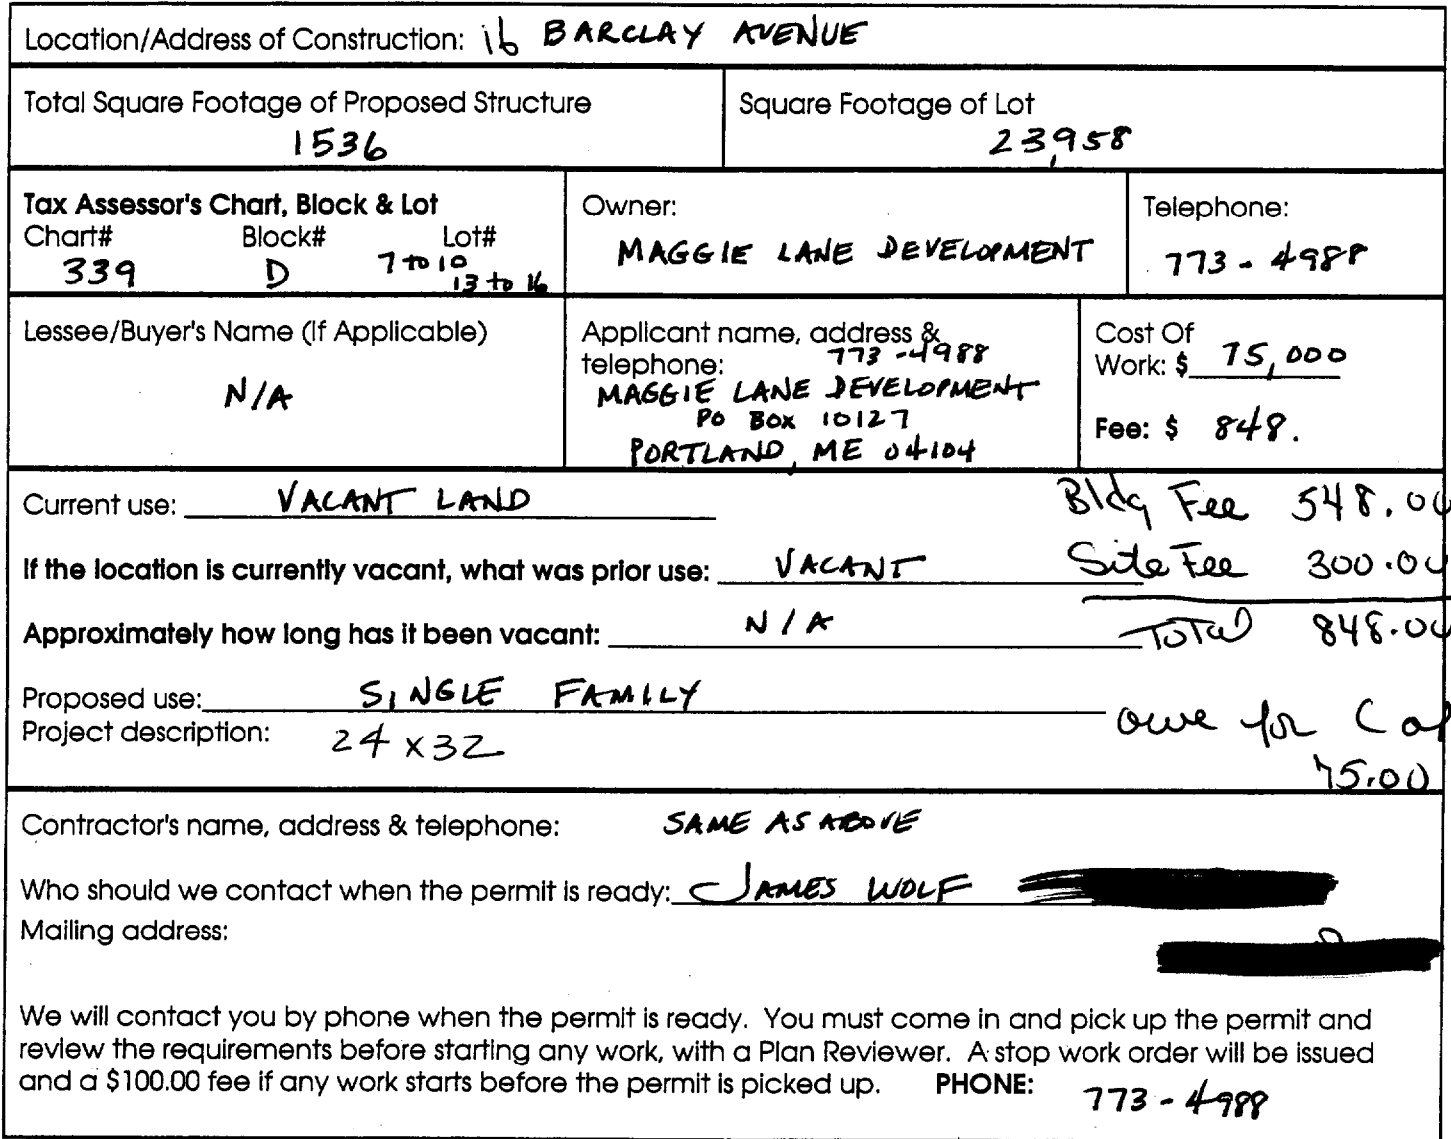 Location/Address of Construction: 16 BARCLAY AVENUE
Total Square Footage of Proposed Structure
1536
Square Footage of Lot
23,958
Tax Assessor's Chart, Block & Lot
Chart# Block# Lot#
339 D 7 to 10
13 to 16
Owner:
MAGGIE LANE DEVELOPMENT
Telephone:
773-4988
Lessee/Buyer's Name (If Applicable)
N/A
Applicant name, address &
telephone: 773-4988
MAGGIE LANE DEVELOPMENT
PO BOX 10127
PORTLAND, ME 04104
Cost Of
Work: $ 75,000
Fee: $ 848.
Current use: VACANT LAND
Bldg Fee 548.00
If the location is currently vacant, what was prior use: VACANT
Site Fee 300.00
Approximately how long has it been vacant: N/A
Total 848.00
Proposed use: SINGLE FAMILY
Project description: 24 x 32
owe for C of
75.00
Contractor's name, address & telephone: SAME AS ABOVE
Who should we contact when the permit is ready: JAMES WOLF
Mailing address:
We will contact you by phone when the permit is ready. You must come in and pick up the permit and
review the requirements before starting any work, with a Plan Reviewer. A stop work order will be issued
and a $100.00 fee if any work starts before the permit is picked up. PHONE: 773-4988